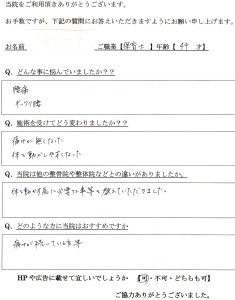 当院をご利用頂きありがとうございます。
お手数ですが、下記の質問にお答えいただきますようにお願い申し上げます。
お名前 ご職業【保育士】年齢【 才】
Q. どんな事に悩んでいましたか??
腰痛
ギックリ腰
Q. 施術を受けてどう変わりましたか??
痛みが無くなった
体も動かしやすくなった
Q. 当院は他の整骨院や整体院などとの違いがありましたか。
体を動かす為に必要な事等も教えていただきました。
Q. どのような方に当院はおすすめですか
痛みが続いている方等
HPや広告に載せて宜しいでしょうか【可・不可・どちらも可】
ご協力ありがとうございました。